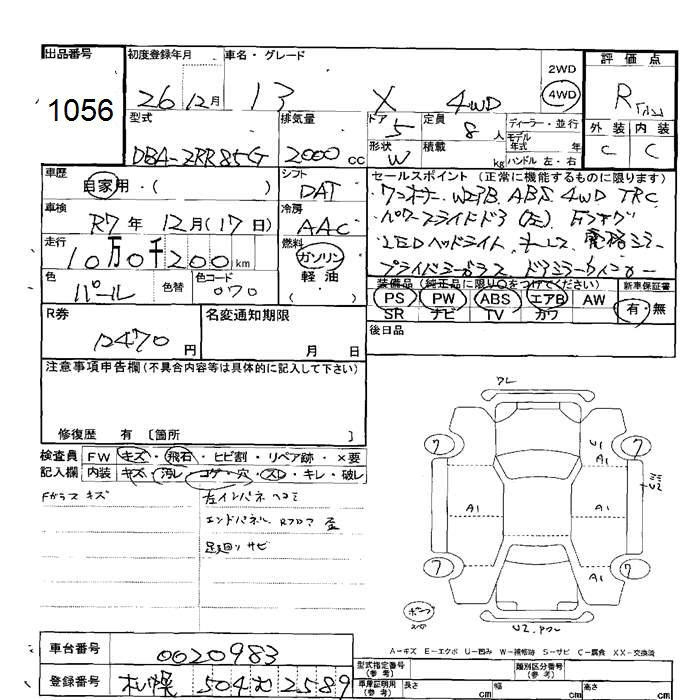 出品番号
1056
初度登録年月
26年12月
車名・グレード
X 4WD
2WD
4WD
評価点
R
外装 内装
C C
型式
DBA-ZRR85G
排気量
2000 cc
ドア
5
定員
8 人
ディーラー・並行
モデル
年式 年
形状
W
積載
kg
ハンドル 左・右
車歴
自家用・( )
シフト
DAT
車検
R7年 12月(17日)
冷房
AAC
走行
10万0千200km
燃料
ガソリン
軽油
( )
色
パール
色替
色コード
070
セールスポイント (正常に機能するものに限ります)
ワンオーナー W2ｱB ABS 4WD TRC
パワースライドドア(左) Fフォグ
LEDヘッドライト
プライバシーガラス ドアミラーウインカー
装備品(純正品に限り○をつけてください)
PS PW ABS エアB AW
SR ナビ TV カワ
新車保証書
有・無
R券
12470円
名変通知期限
月 日
後日品
注意事項申告欄(不具合内容等は具体的に記入して下さい)
修復歴 有 〔箇所 〕
検査員 FW キズ・飛石・ヒビ割・リペア跡・×要
記入欄 内装 キズ・汚レ・コゲ・穴・スレ・キレ・破レ
Fガラス キズ
左インパネ ヘコミ
エンドパネル Rフロア 歪
足廻り サビ
ワレ
7 7
U1
A1
A1 A1
U2
7 7
A1
U2.ワレ
A-キズ E-エクボ U-凹み W-補修跡 S-サビ C-腐食 XX-交換済
車台番号
0020983
登録番号
札幌 504 2589
型式指定番号
(参考)
類別区分番号
(参考)
車庫証明用
(参考)
長さ cm
幅 cm
高さ cm